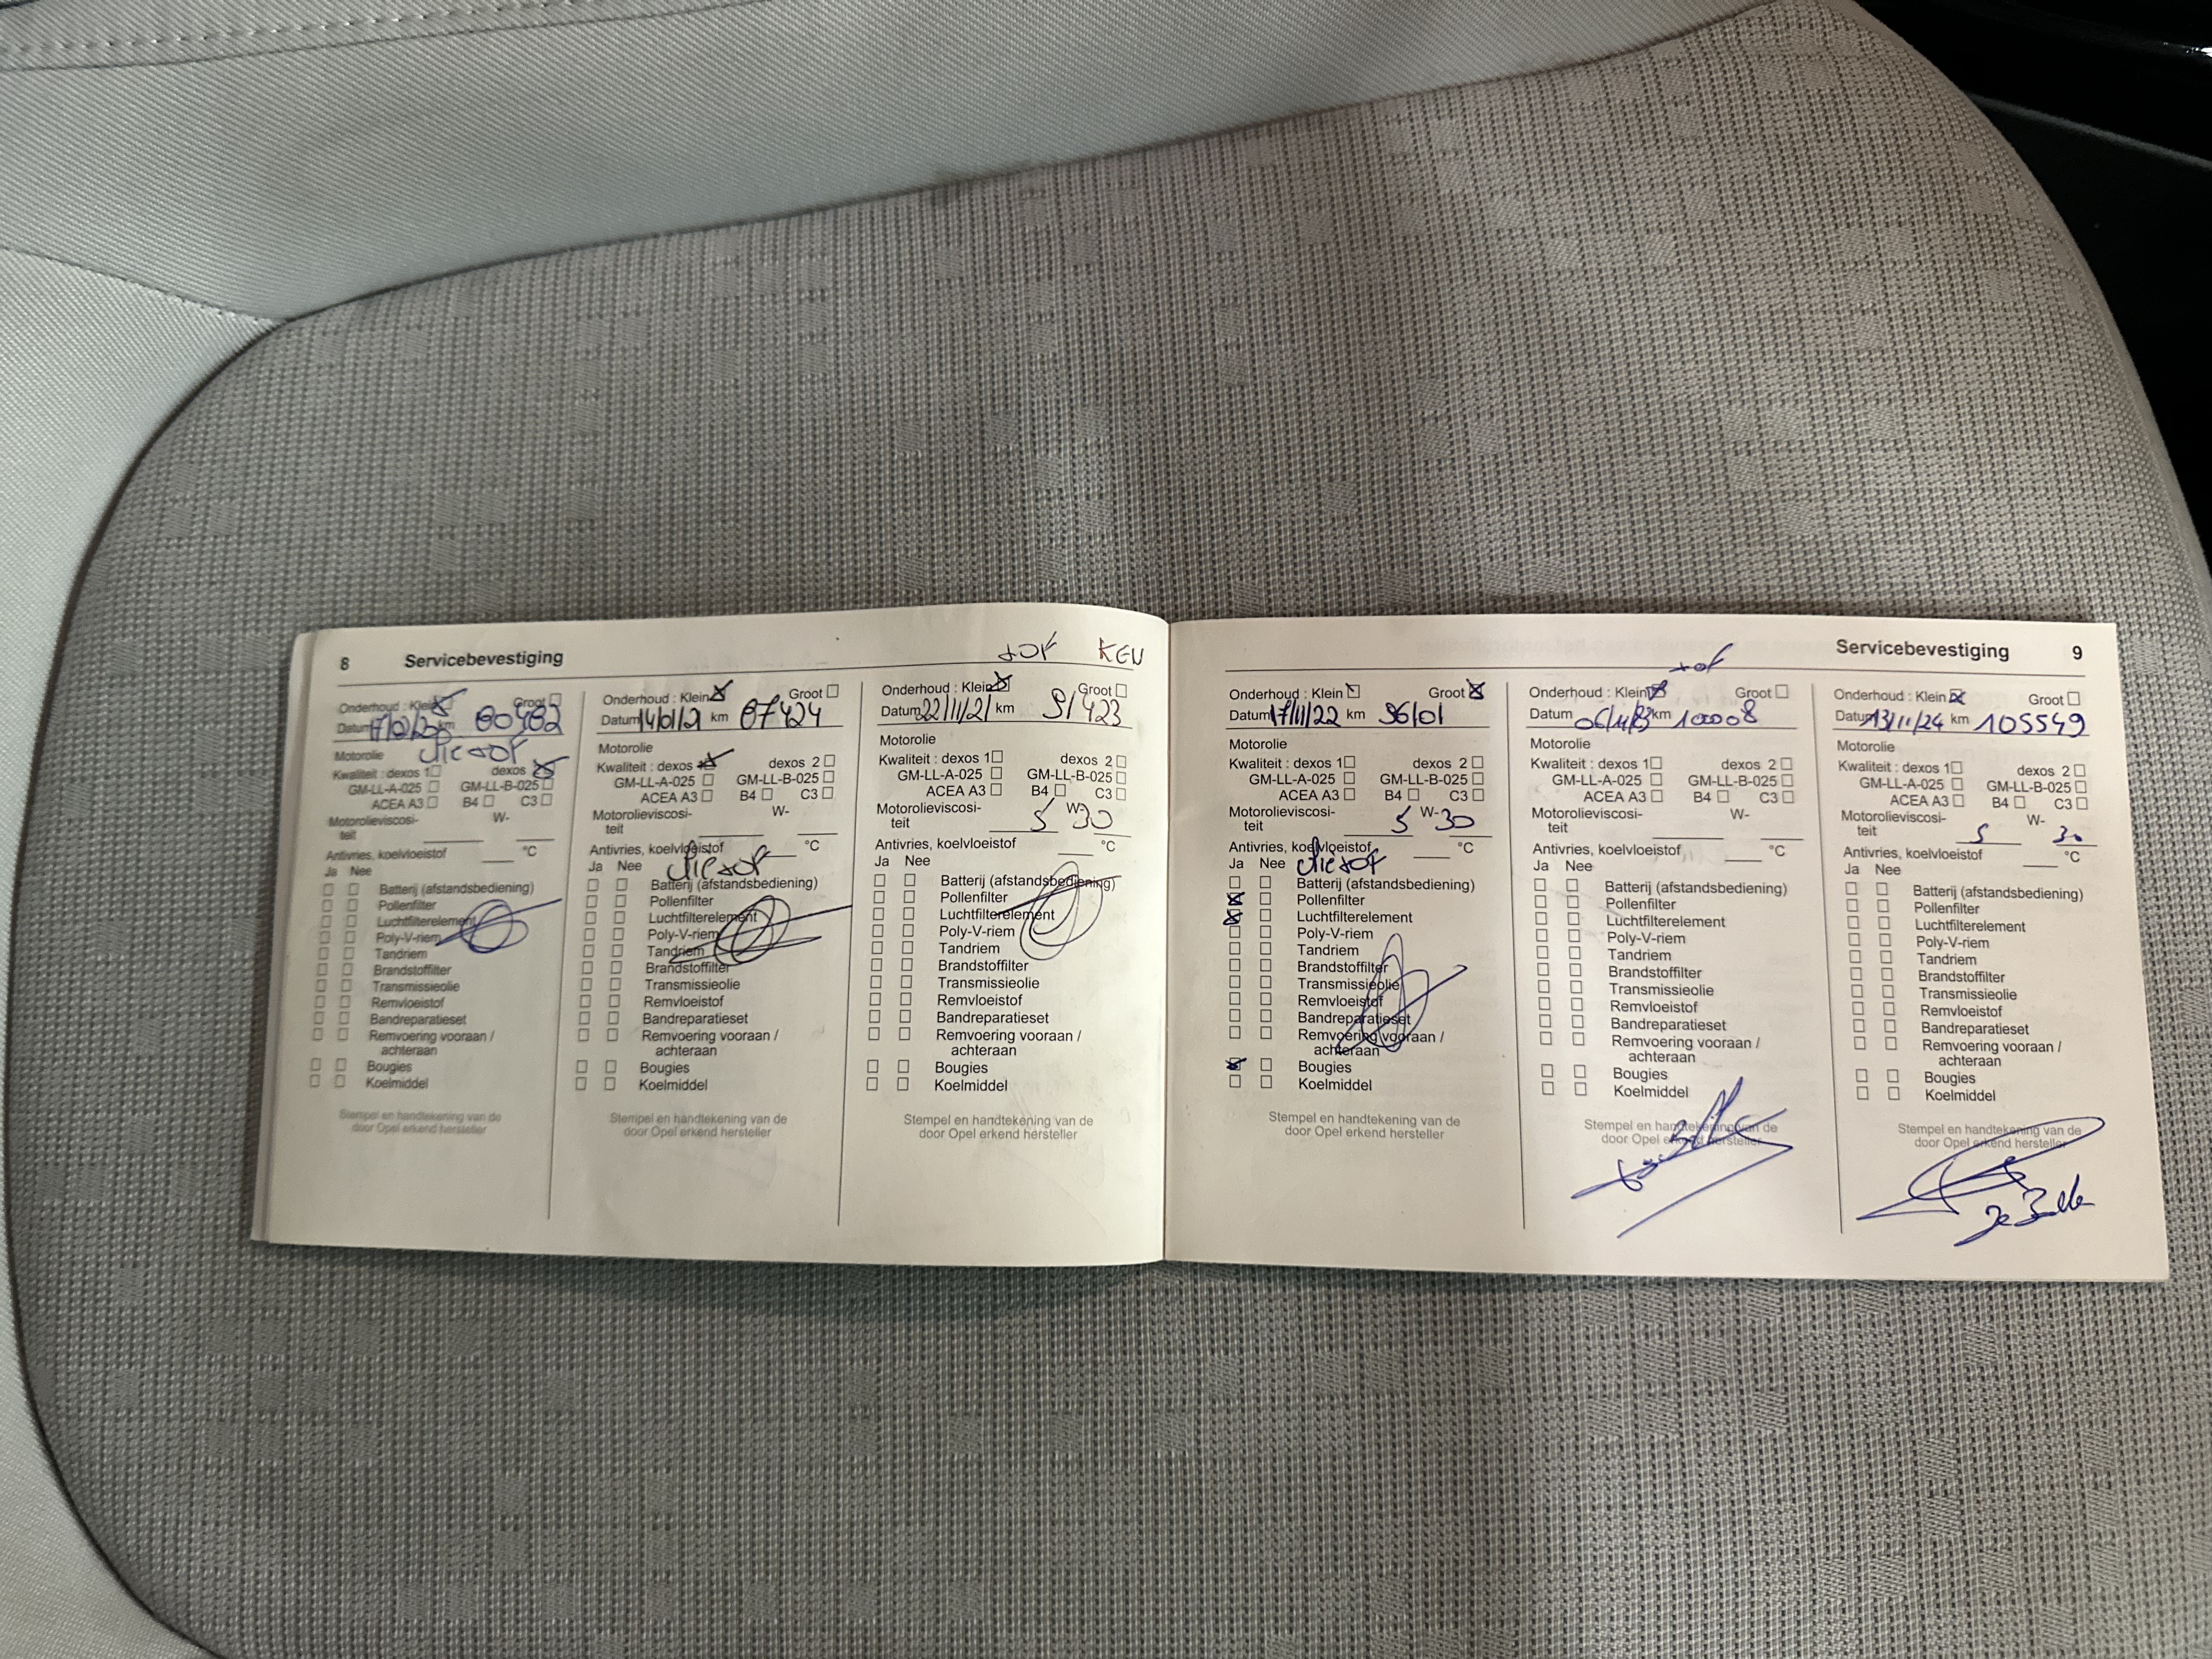 8 Servicebevestiging
+OF KEN
Onderhoud : Klein ☒ Groot ☐
Datum km 80482
Motorolie
olie+OF
Kwaliteit : dexos 1 ☐ dexos ☒
GM-LL-A-025 ☐ GM-LL-B-025 ☐
ACEA A3 ☐ B4 ☐ C3 ☐
Motorolieviscosi- W-
teit
Antivries, koelvloeistof °C
Ja Nee
☐ ☐ Batterij (afstandsbediening)
☐ ☐ Pollenfilter
☐ ☐ Luchtfilterelement
☐ ☐ Poly-V-riem
☐ ☐ Tandriem
☐ ☐ Brandstoffilter
☐ ☐ Transmissieolie
☐ ☐ Remvloeistof
☐ ☐ Bandreparatieset
☐ ☐ Remvoering vooraan /
achteraan
☐ ☐ Bougies
☐ ☐ Koelmiddel
Stempel en handtekening van de
door Opel erkend hersteller
Onderhoud : Klein ☒ Groot ☐
Datum km 87424
Motorolie
Kwaliteit : dexos ☒ dexos 2 ☐
GM-LL-A-025 ☐ GM-LL-B-025 ☐
ACEA A3 ☐ B4 ☐ C3 ☐
Motorolieviscosi- W-
teit
Antivries, koelvloeistof °C
olie+OF
Ja Nee
☐ ☐ Batterij (afstandsbediening)
☐ ☐ Pollenfilter
☐ ☐ Luchtfilterelement
☐ ☐ Poly-V-riem
☐ ☐ Tandriem
☐ ☐ Brandstoffilter
☐ ☐ Transmissieolie
☐ ☐ Remvloeistof
☐ ☐ Bandreparatieset
☐ ☐ Remvoering vooraan /
achteraan
☐ ☐ Bougies
☐ ☐ Koelmiddel
Stempel en handtekening van de
door Opel erkend hersteller
Onderhoud : Klein ☒ Groot ☐
Datum 22/11/21 km 91423
Motorolie
Kwaliteit : dexos 1 ☐ dexos 2 ☐
GM-LL-A-025 ☐ GM-LL-B-025 ☐
ACEA A3 ☐ B4 ☐ C3 ☐
Motorolieviscosi- 5 W-30
teit
Antivries, koelvloeistof °C
Ja Nee
☐ ☐ Batterij (afstandsbediening)
☐ ☐ Pollenfilter
☐ ☐ Luchtfilterelement
☐ ☐ Poly-V-riem
☐ ☐ Tandriem
☐ ☐ Brandstoffilter
☐ ☐ Transmissieolie
☐ ☐ Remvloeistof
☐ ☐ Bandreparatieset
☐ ☐ Remvoering vooraan /
achteraan
☐ ☐ Bougies
☐ ☐ Koelmiddel
Stempel en handtekening van de
door Opel erkend hersteller
Servicebevestiging 9
+of
Onderhoud : Klein ☐ Groot ☒
Datum 17/11/22 km 96101
Motorolie
Kwaliteit : dexos 1 ☐ dexos 2 ☐
GM-LL-A-025 ☐ GM-LL-B-025 ☐
ACEA A3 ☐ B4 ☐ C3 ☐
Motorolieviscosi- 5 W-30
teit
Antivries, koelvloeistof °C
olie+OF
Ja Nee
☐ ☐ Batterij (afstandsbediening)
☒ ☐ Pollenfilter
☒ ☐ Luchtfilterelement
☐ ☐ Poly-V-riem
☐ ☐ Tandriem
☐ ☐ Brandstoffilter
☐ ☐ Transmissieolie
☐ ☐ Remvloeistof
☐ ☐ Bandreparatieset
☐ ☐ Remvoering vooraan /
achteraan
☒ ☐ Bougies
☐ ☐ Koelmiddel
Stempel en handtekening van de
door Opel erkend hersteller
Onderhoud : Klein ☒ Groot ☐
Datum km 100008
Motorolie
Kwaliteit : dexos 1 ☐ dexos 2 ☐
GM-LL-A-025 ☐ GM-LL-B-025 ☐
ACEA A3 ☐ B4 ☐ C3 ☐
Motorolieviscosi- W-
teit
Antivries, koelvloeistof °C
Ja Nee
☐ ☐ Batterij (afstandsbediening)
☐ ☐ Pollenfilter
☐ ☐ Luchtfilterelement
☐ ☐ Poly-V-riem
☐ ☐ Tandriem
☐ ☐ Brandstoffilter
☐ ☐ Transmissieolie
☐ ☐ Remvloeistof
☐ ☐ Bandreparatieset
☐ ☐ Remvoering vooraan /
achteraan
☐ ☐ Bougies
☐ ☐ Koelmiddel
Stempel en handtekening van de
door Opel erkend hersteller
Onderhoud : Klein ☒ Groot ☐
Datum 13/11/24 km 105549
Motorolie
Kwaliteit : dexos 1 ☐ dexos 2 ☐
GM-LL-A-025 ☐ GM-LL-B-025 ☐
ACEA A3 ☐ B4 ☐ C3 ☐
Motorolieviscosi- 5 W- 30
teit
Antivries, koelvloeistof °C
Ja Nee
☐ ☐ Batterij (afstandsbediening)
☐ ☐ Pollenfilter
☐ ☐ Luchtfilterelement
☐ ☐ Poly-V-riem
☐ ☐ Tandriem
☐ ☐ Brandstoffilter
☐ ☐ Transmissieolie
☐ ☐ Remvloeistof
☐ ☐ Bandreparatieset
☐ ☐ Remvoering vooraan /
achteraan
☐ ☐ Bougies
☐ ☐ Koelmiddel
Stempel en handtekening van de
door Opel erkend hersteller